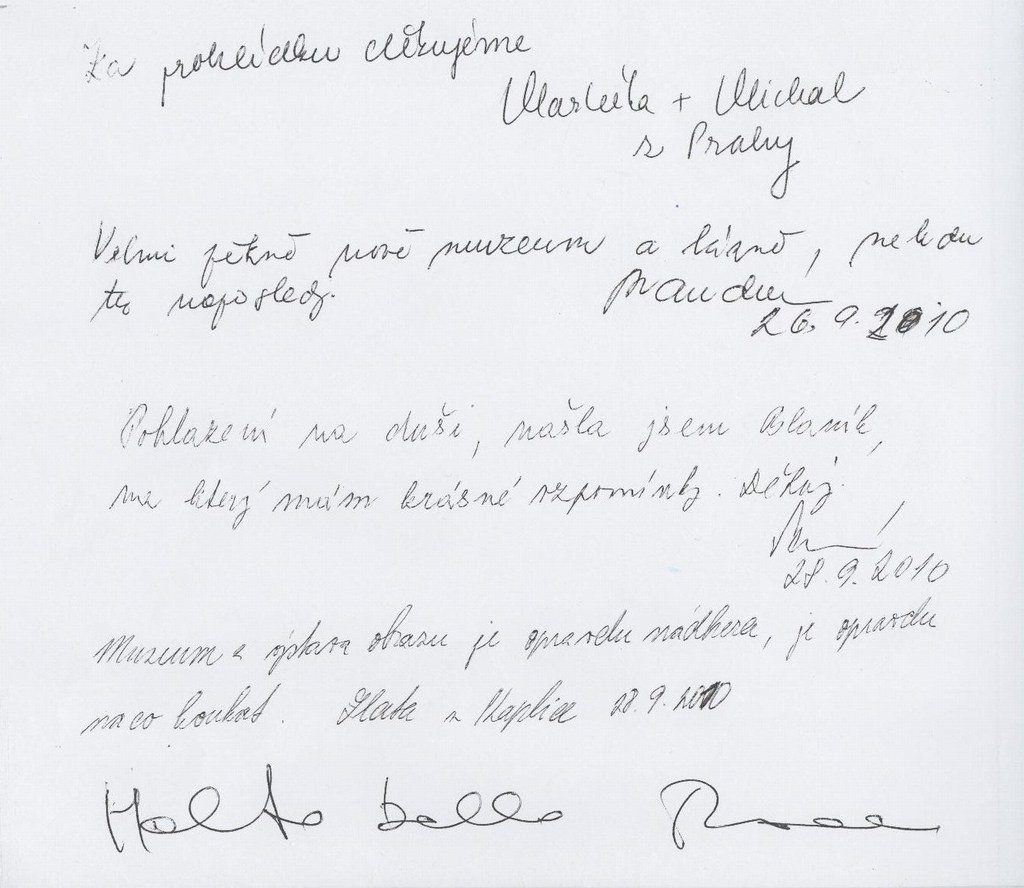 Za prohlídku děkujeme
Markéta + Michal
z Prahy
Velmi pěkné nové muzeum a lázně, nebudu
tu naposledy.
26. 9. 2010
Pohlazení na duši, našla jsem Blaník,
na který mám krásné vzpomínky. Děkuji.
28. 9. 2010
Muzeum a výstava obrazů je opravdu nádherná, je opravdu
na co koukat. Zlata z Kaplice 28. 9. 2010
Molto bello